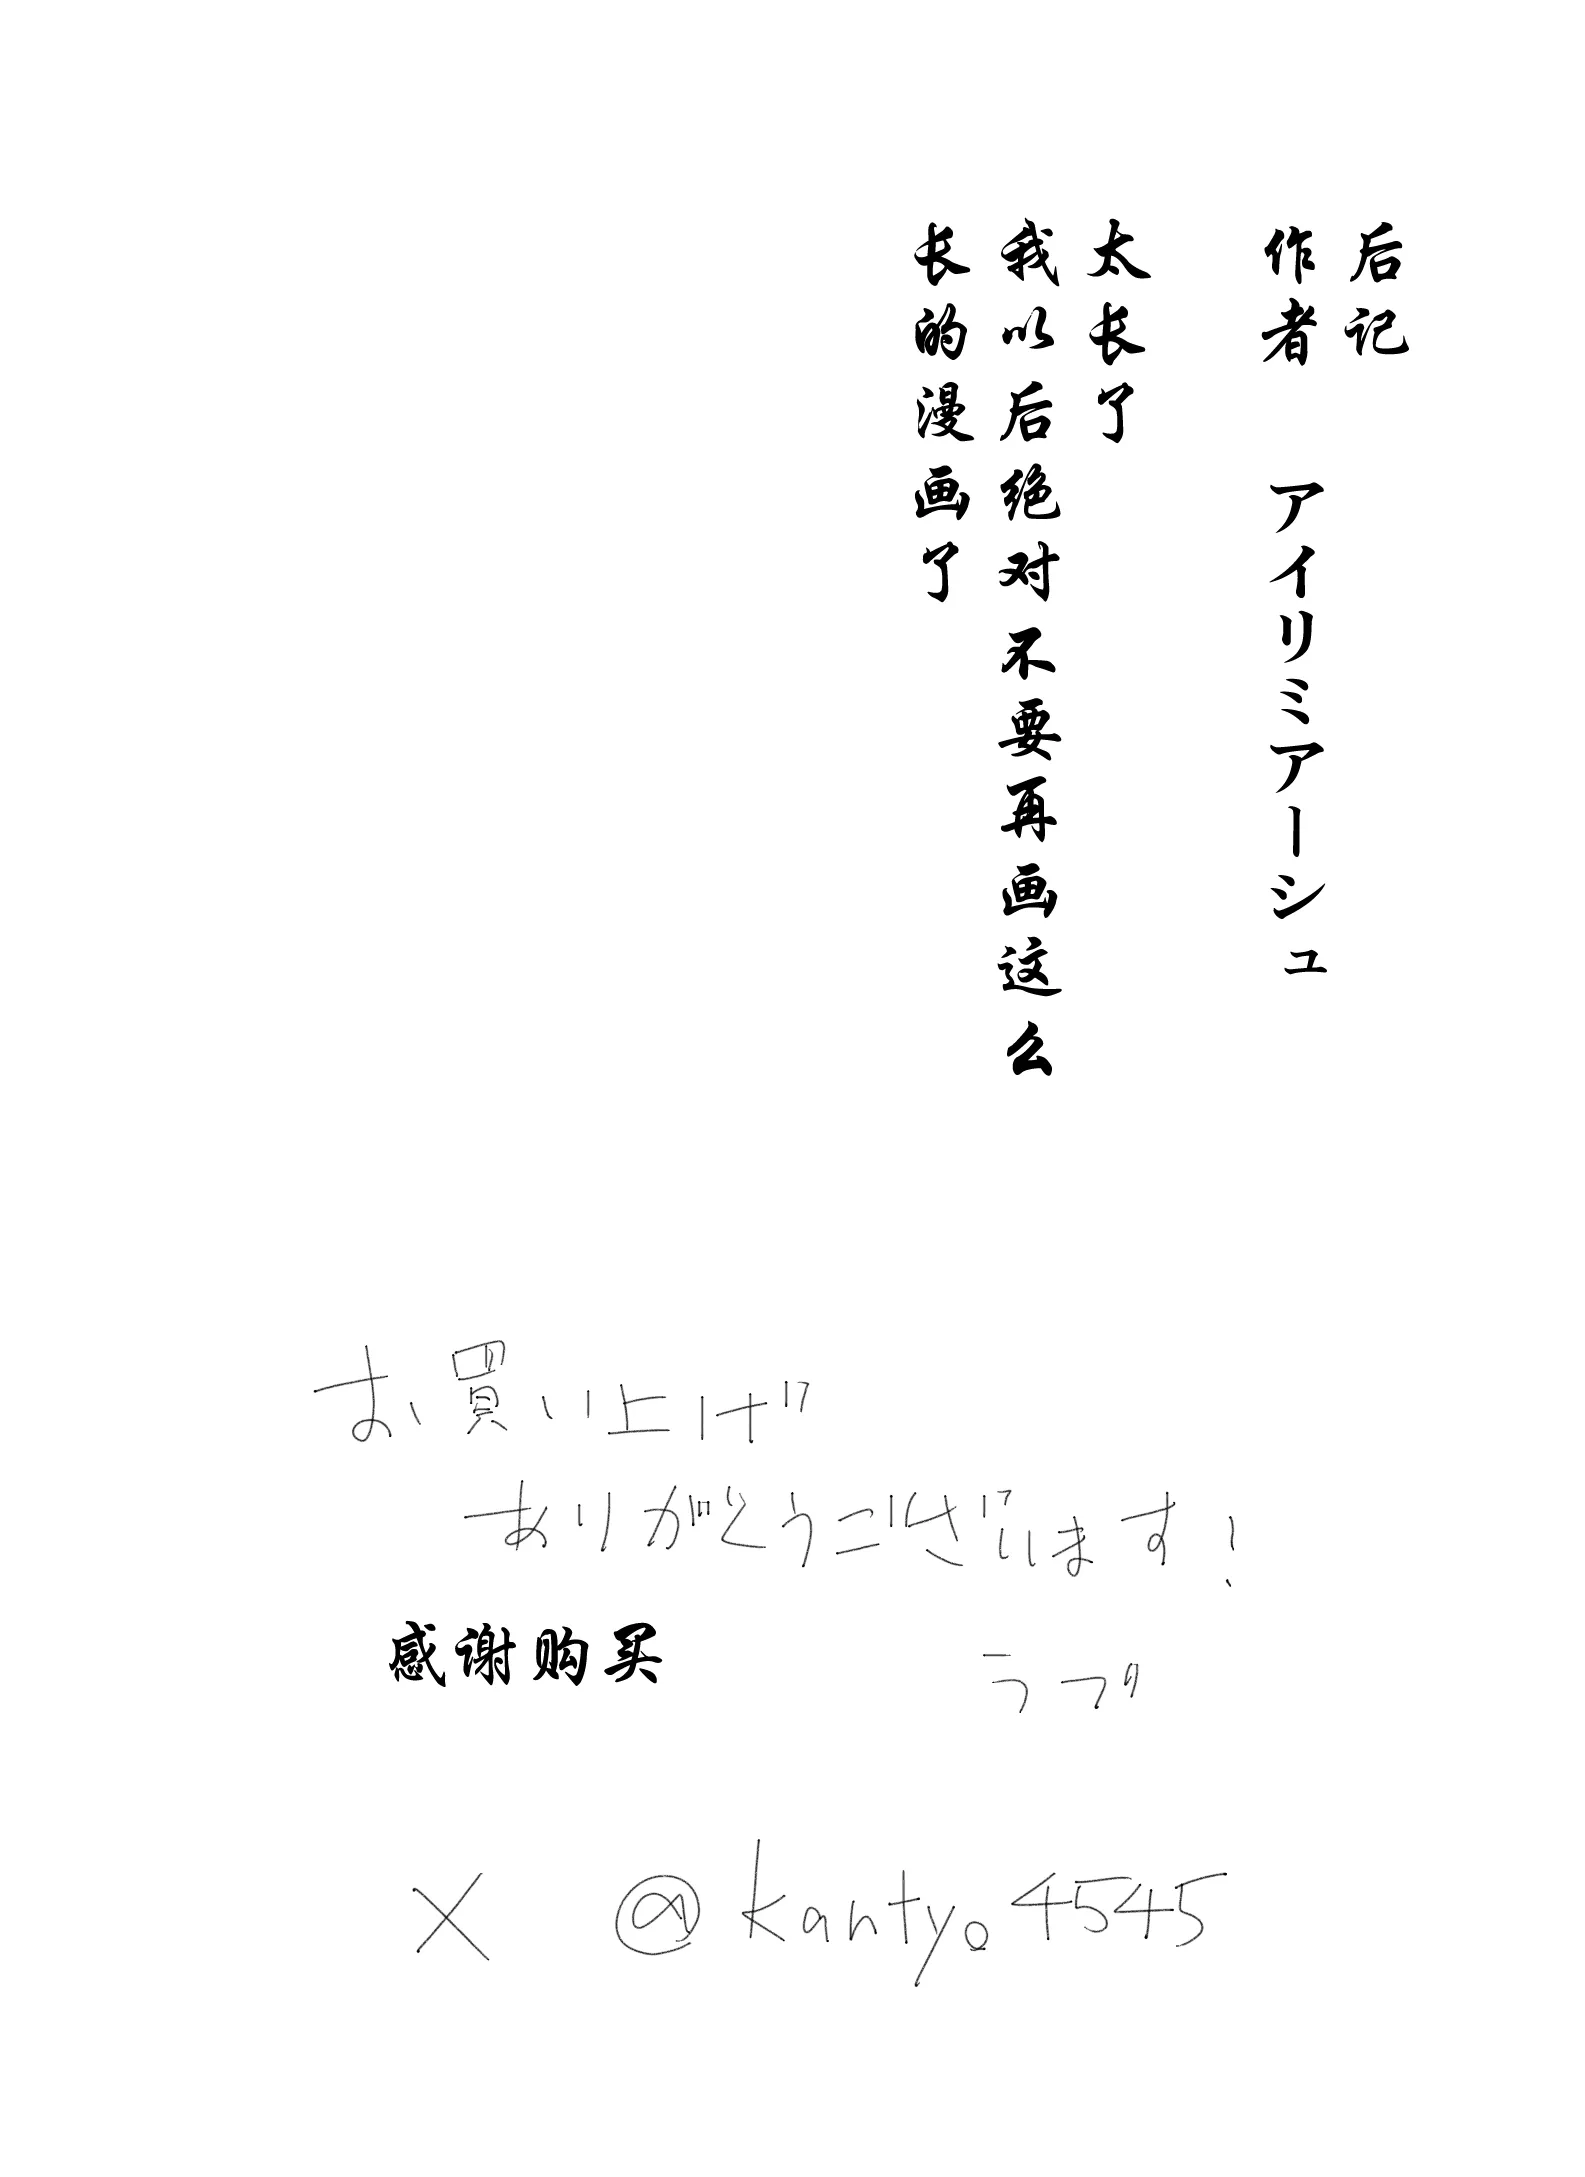 后记
作者 アイリミアーシュ
太长了
我以后绝对不要再画这么
长的漫画了
お買い上げ
ありがとうございます!
感谢购买
ラブ
X @kantyo4545